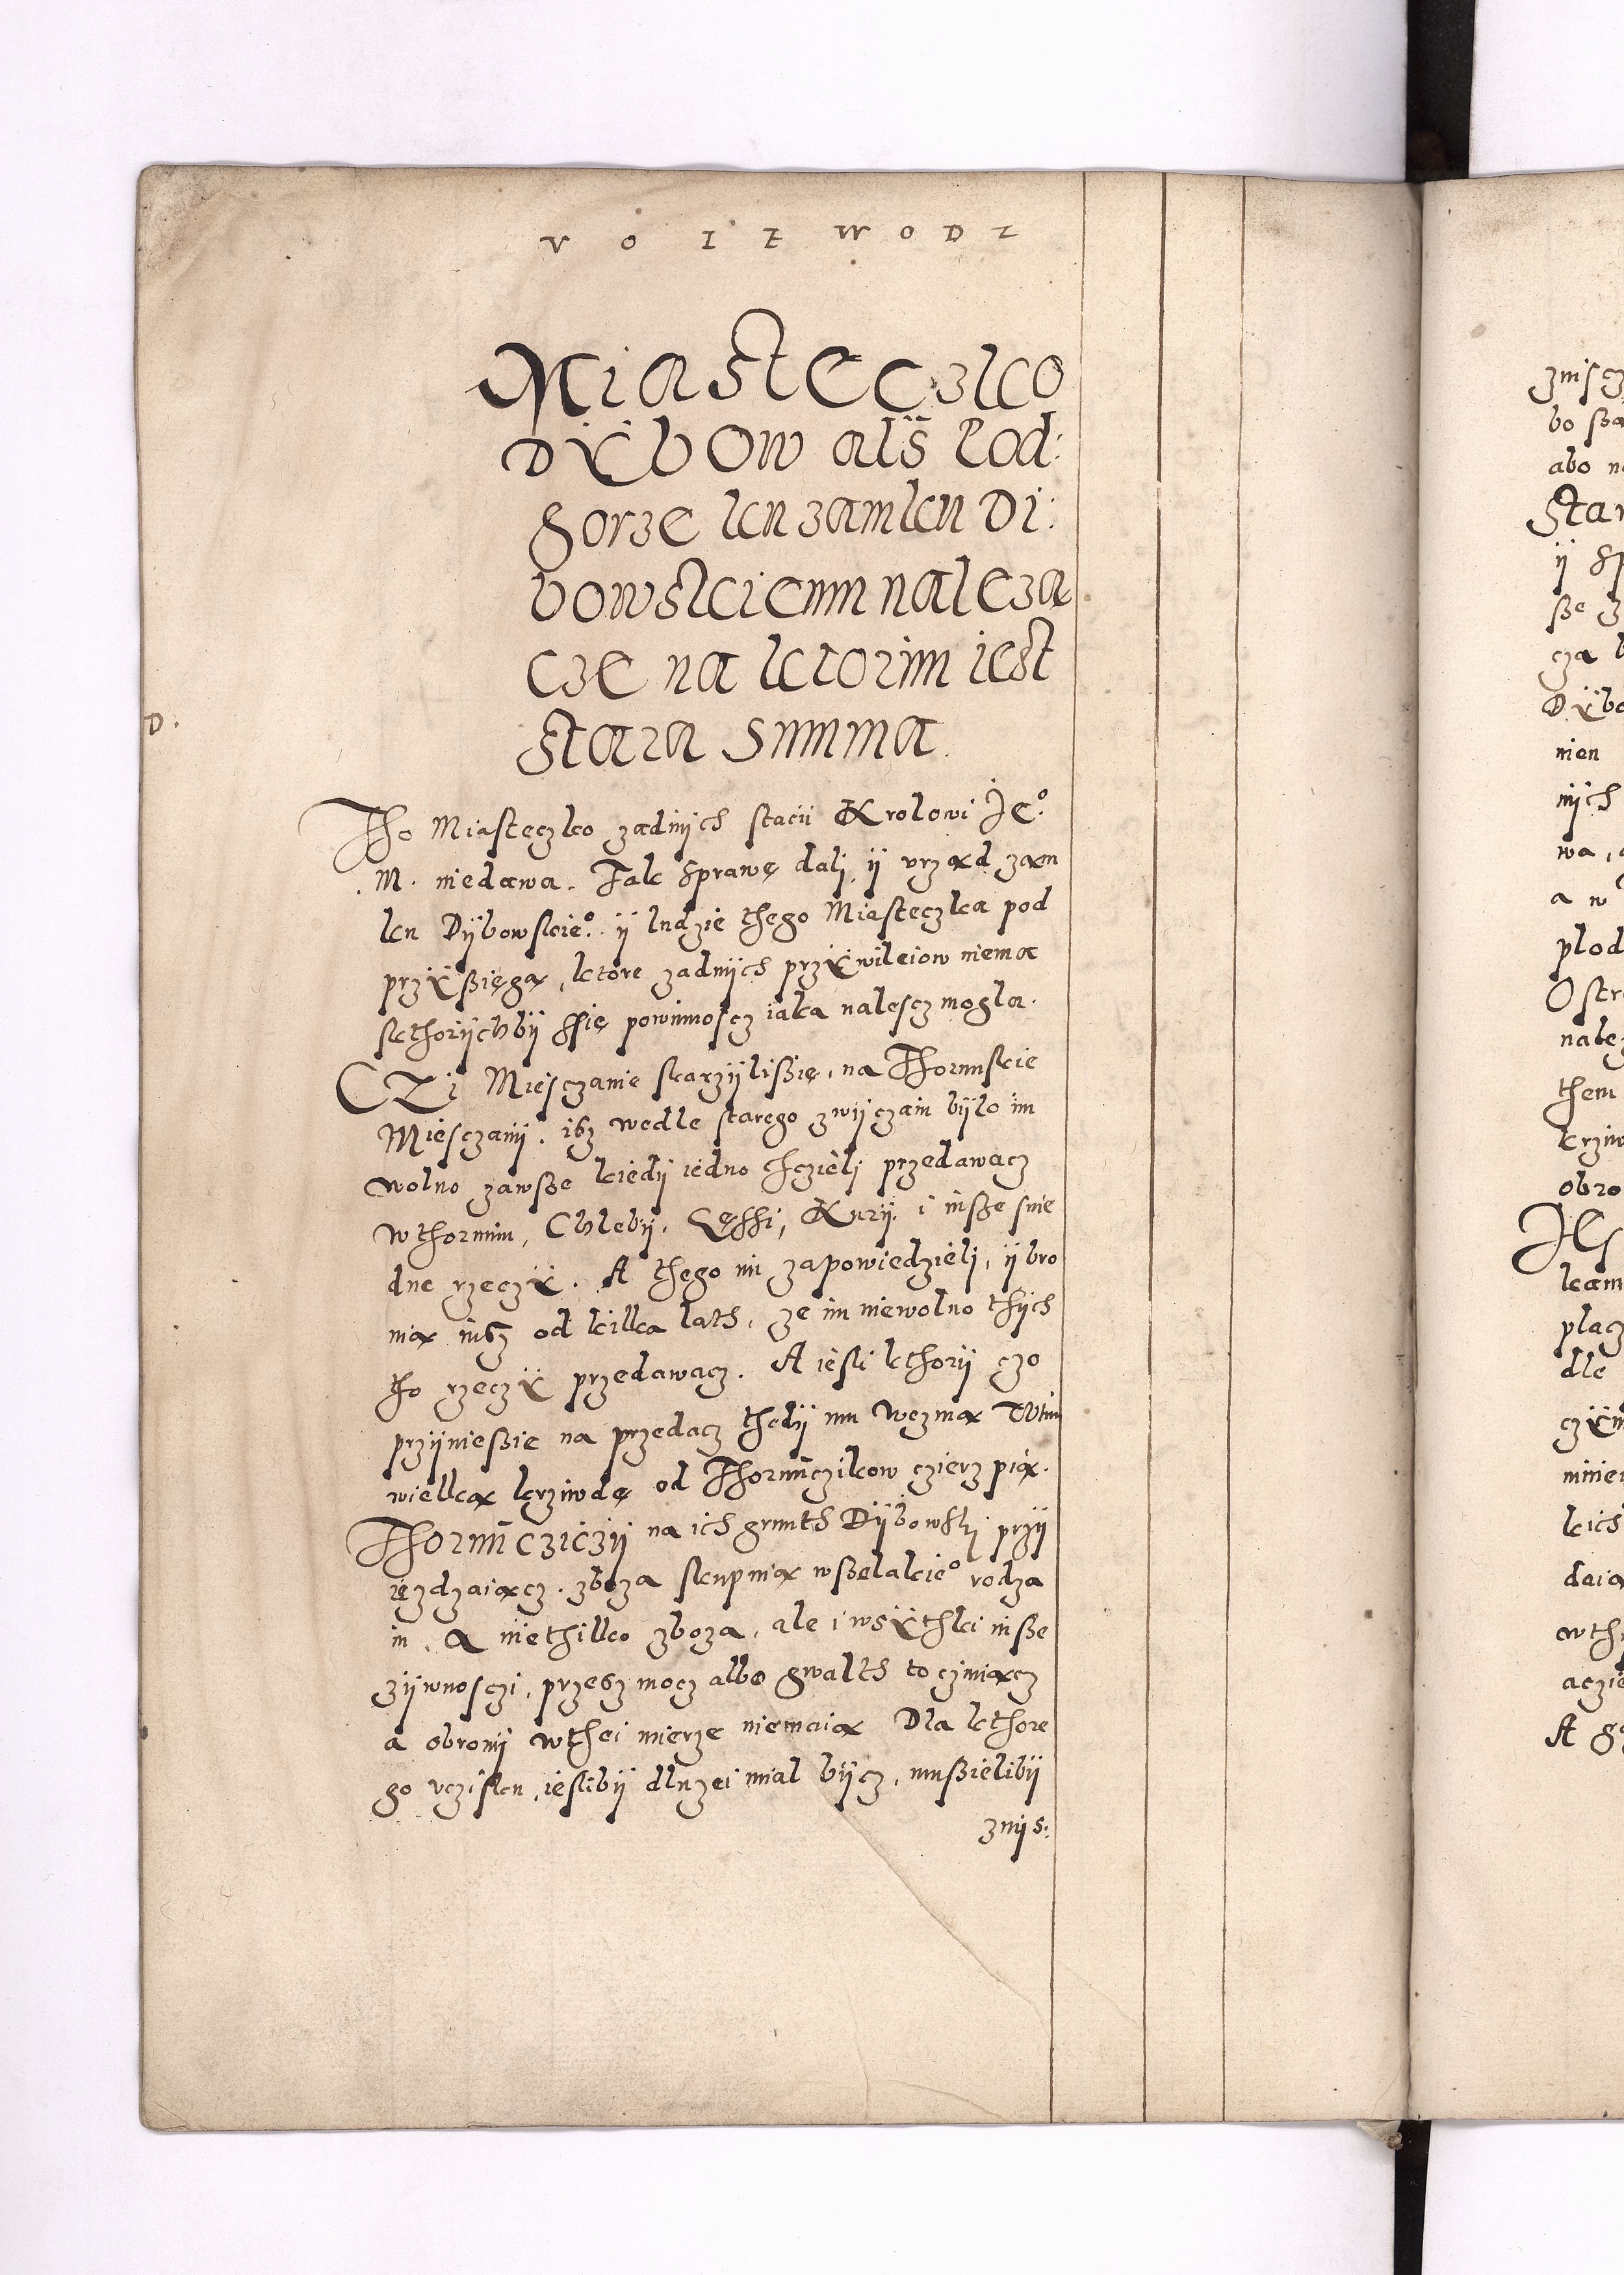 VOIEWODZ
Miasteczko
Dÿbow als Pod:
gorze ku zamku Di:
bowskiemu należą
cze na ktorim iest
stara summa.
D.
Tho Miasteczko zadnijch stacii Krolowi Je°
M. niedawa. Tak sprawę dalj ij vrząd zam
ku Dijbowskie° ij ludzie thego Miasteczka pod
przÿsięgą, ktore zadnijch przÿwileiow niema
skthorijchbij ssię powinnoscz iaka nalescz mogla.
CZi Miesczanie skarzijlisię, na Thorunskie
Miesczanij. isz wedle starego zwijczaiu bijlo im
wolno zawsze kiedij iedno chczielj przedawacz
w thoruniu, Chlebij, Gęssi, Kurij i insze snie
dne rzeczÿ. A thego im zapowiedzielj, ij bro
nią iusz od kilka lath, ze im niewolno thijch
tho rzeczÿ przedawacz. A iesli kthorij czo
przijniesie na przedacz thedij mu wezmą W tim
wielką krziwdę od Thorunczikow czierzpią.
Thoruncziczij na ich grunth Dijbowskj przij
iezdzaiącz. zboza skupuią wszelakie° rodza
iu, a niethilko zboza, ale i wsÿthki insze
zijwnosczi, przesz mocz albo gwalth to cziniącz
a obronij wthei mierze niemaią Dla kthore
go vczisku, ieslibij dluzei mial bijcz, musielibij
znijs: